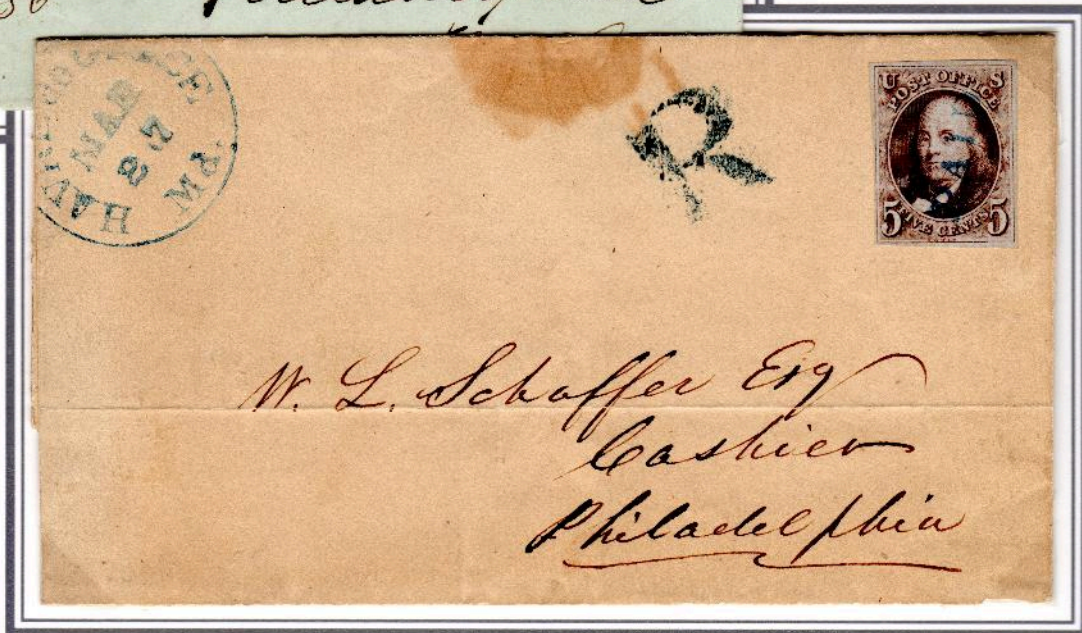 HAVRE DE GRACE. Md.
MAR
27
R
U S
POST OFFICE
PAID
5 FIVE CENTS 5
W. L. Schaffer Esq
Cashier
Philadelphia